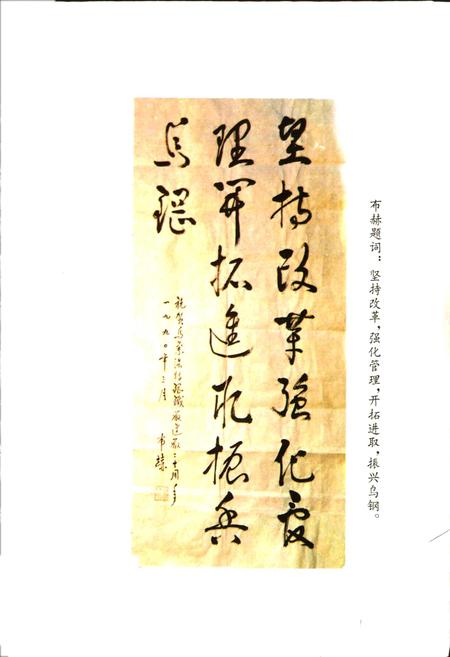 布赫题词：坚持改革，强化管理，开拓进取，振兴乌钢。
坚持改革強化管
理开拓進取振兴
乌钢
祝贺乌兰浩特钢铁厂建厂
一九九〇年 月 布赫